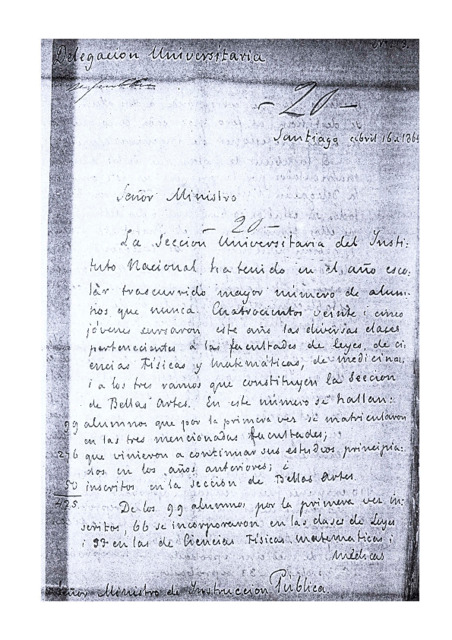 Delegacion Universitaria
- 20 -
Santiago Abril 16 de 186
Señor Ministro
- 20 -
La Seccion Universitaria del Insti-
tuto Nacional ha tenido en el año esco-
lar trascurrido mayor número de alum-
nos que nunca. Cuatrocientos veinte i cinco
jóvenes cursaron este año las diversas clases
pertenecientes a las facultades de leyes, de ci-
encias Físicas y matemáticas, de medicina,
i a los tres ramos que constituyen la Seccion
de Bellas Artes. En este número se hallan:
99 alumnos que por la primera vez se matricularon
en las tres mencionadas facultades;
276 que vinieron a continuar sus estudios principia-
dos en los años anteriores; i
50 inscritos en la sección de Bellas Artes
425.
De los 99 alumnos por la primera vez in-
scritos, 66 se incorporaron en las clases de Leyes
i 33 en las de Ciencias Físicas matemáticas i
médicas
Señor Ministro de Instruccion Pública.